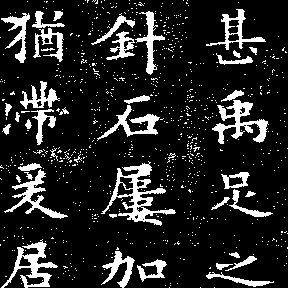 甚禹足之
針石屢加
猶滯爰居